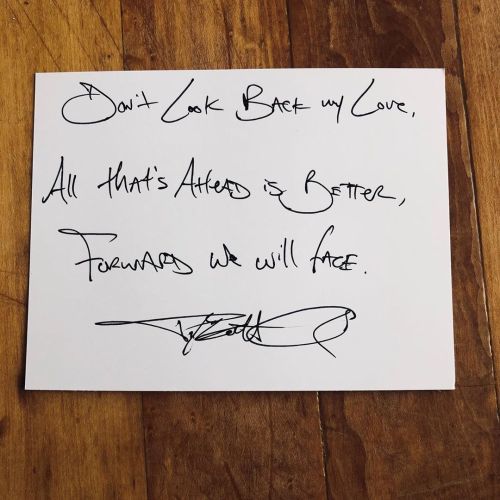 Don't Look Back my Love,
All that's Ahead is Better,
Forward we will face.